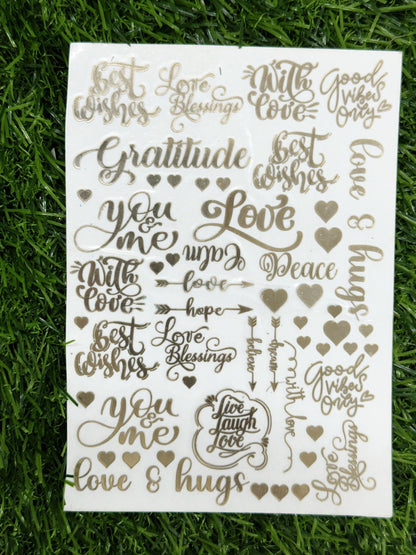 Best
Wishes
Love
Blessings
With
Love
Good
Vibes
Only
Gratitude
Best
Wishes
love & hugs
you
&
me
Love
Calm
Peace
With
Love
love
hope
Best
Wishes
Love
Blessings
believe
dream
with love
Good
Vibes
Only
you
&
me
Live
Laugh
Love
love & hugs